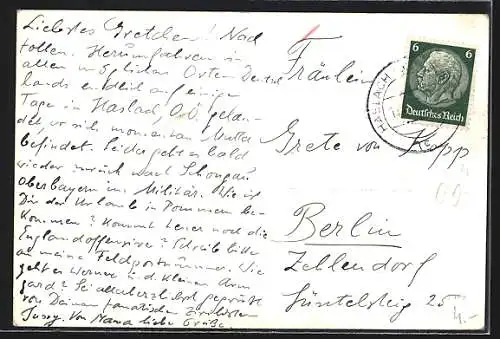 Liebstes Gretchen! Nach
tollem Herumfahren in
allen möglichen Orten Deutsch
lands endlich auf einige
Tage in Haslach, gelan-
det, wo sich momentan Mutta
befindet. Leider geht es bald
wieder zurück nach Schongau
Oberbayern ins Militär. Wie ist
Dir der Urlaub in Pommern be-
kommen? Kommt heuer noch die
Englandoffensive? Schreib bitte
an meine Feldpostnummer. Wie
geht es Werner u. d. kleinen
gard? Sei allerherzlichst gegrüsst
von Deinem fanatischen
Von Mama liebe Grüße
Fräulein
Grete von Kapp
Berlin
Zehlendorf
25
HASLACH
6 6
Deutsches Reich
4.-